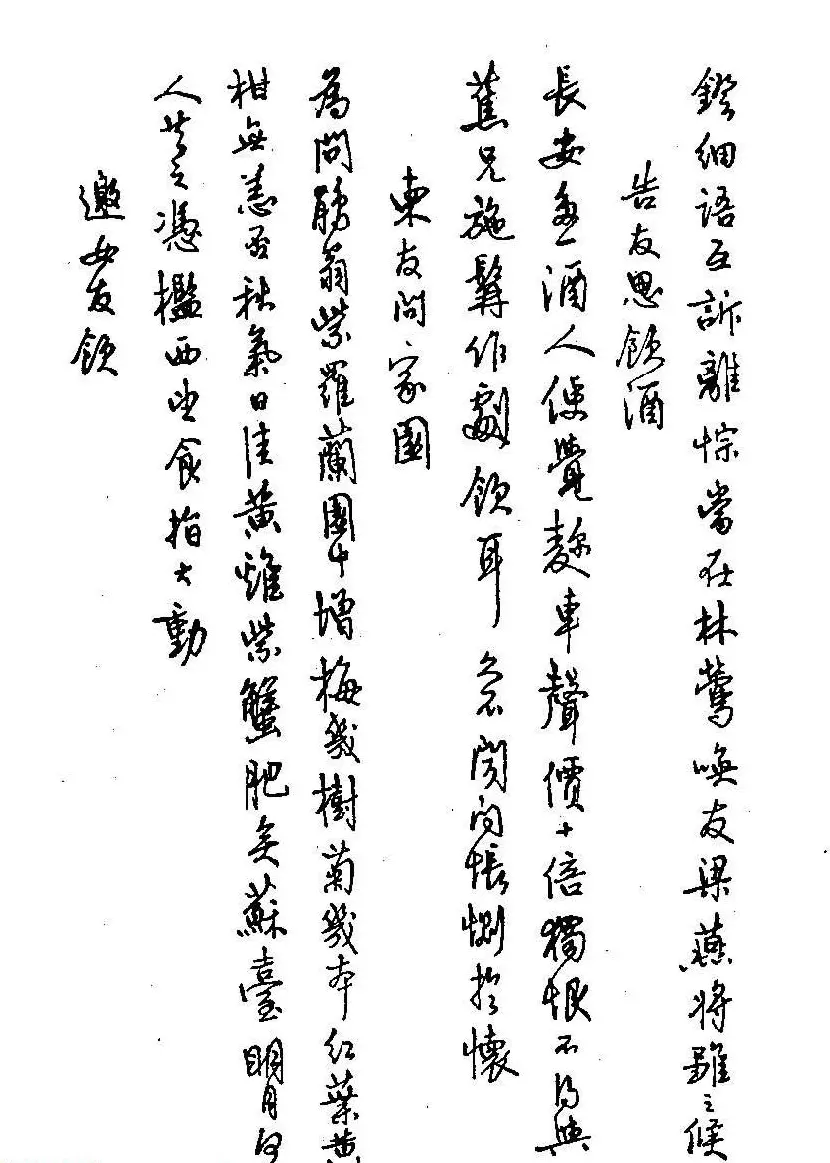 鐙細語互訴離悰當在林鶯喚友梁燕將雛之候
告友思飲酒
長安無酒人便覺麴車聲價十倍獨恨不得與
蕉兄施髯作劇飲耳 久不聞問悵惻於懷
柬友問家園
為問勝翁紫羅蘭園中增梅幾樹菊幾本紅葉黃
柑無恙否秋氣日佳黃雞紫蟹肥矣蘇臺明月何
人共之憑檻西望食指大動
邀女友飲